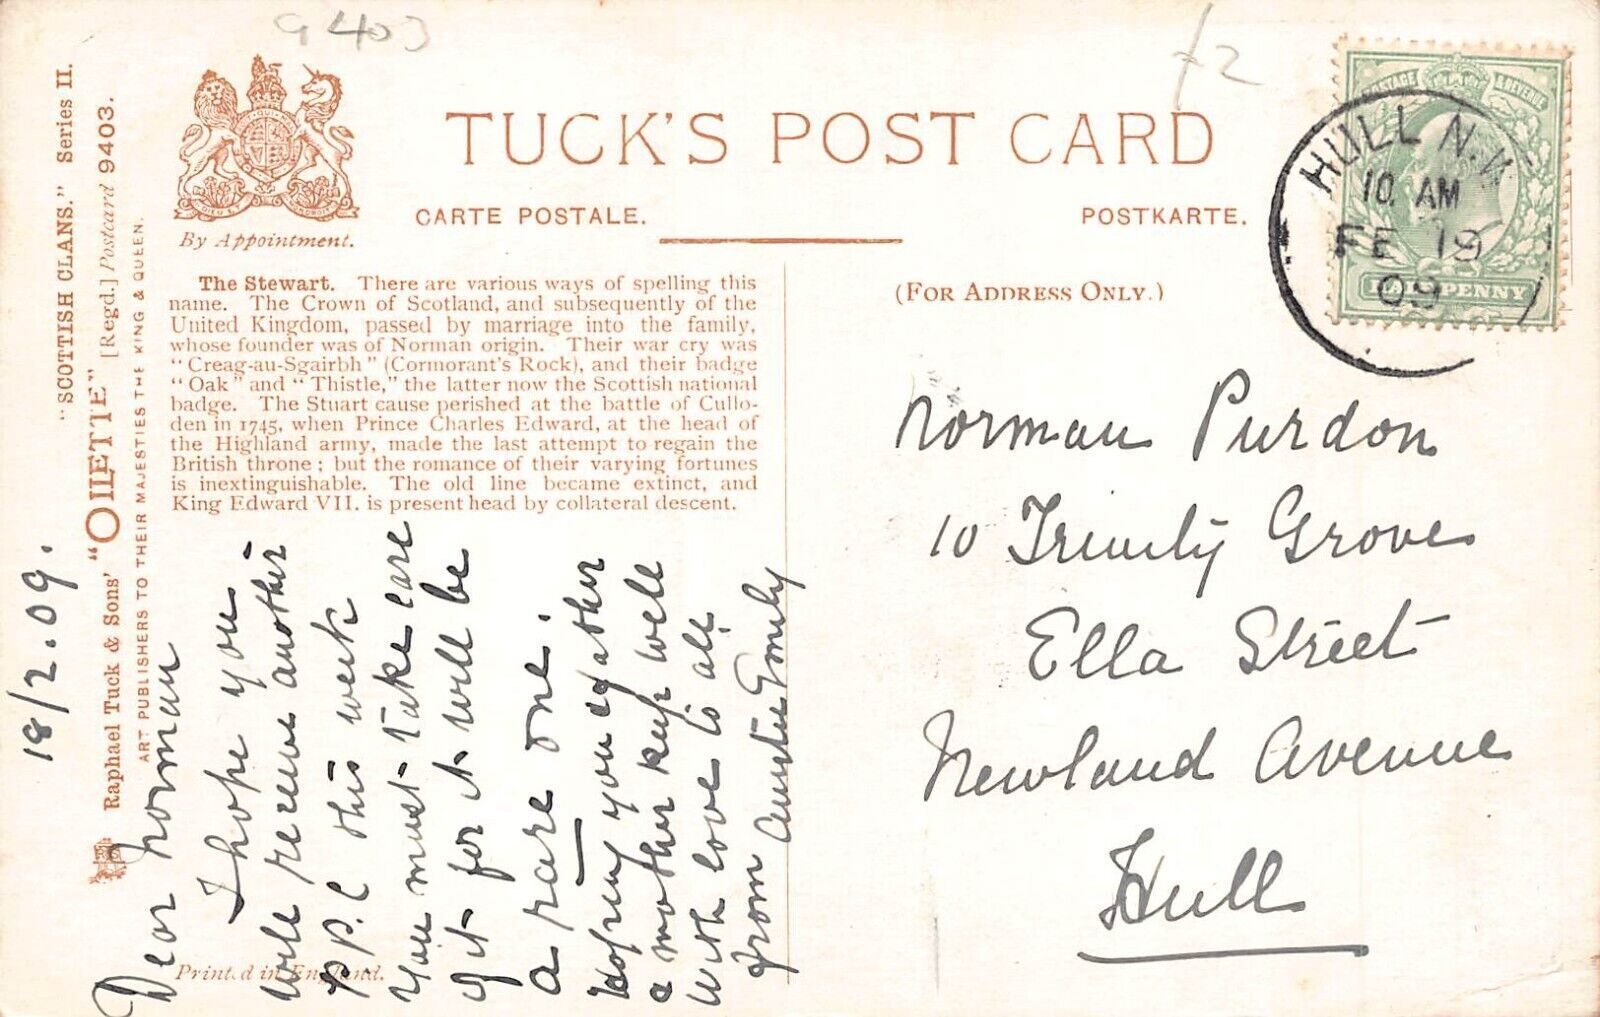 G 403
£2
"SCOTTISH CLANS." Series II.
"OILETTE" [Regd.] Postcard 9403.
Raphael Tuck & Sons'
ART PUBLISHERS TO THEIR MAJESTIES THE KING & QUEEN.
By Appointment.
TUCK'S POST CARD
CARTE POSTALE.
POSTKARTE.
(FOR ADDRESS ONLY.)
POSTAGE & REVENUE
HALFPENNY
HULL N.W
10. AM
FE 19
09
The Stewart. There are various ways of spelling this
name. The Crown of Scotland, and subsequently of the
United Kingdom, passed by marriage into the family,
whose founder was of Norman origin. Their war cry was
"Creag-au-Sgairbh" (Cormorant's Rock), and their badge
"Oak" and "Thistle," the latter now the Scottish national
badge. The Stuart cause perished at the battle of Cullo-
den in 1745, when Prince Charles Edward, at the head of
the Highland army, made the last attempt to regain the
British throne; but the romance of their varying fortunes
is inextinguishable. The old line became extinct, and
King Edward VII. is present head by collateral descent.
Printed in England.
18/2.09.
Dear Norman
I hope you
will receive another
P.P.C this week
You must take care
of it for it will be
a rare one.
Hoping you & father
& mother keep well
with love to all
from Auntie Emily
Norman Purdon
10 Trinity Grove
Ella Street
Newland Avenue
Hull